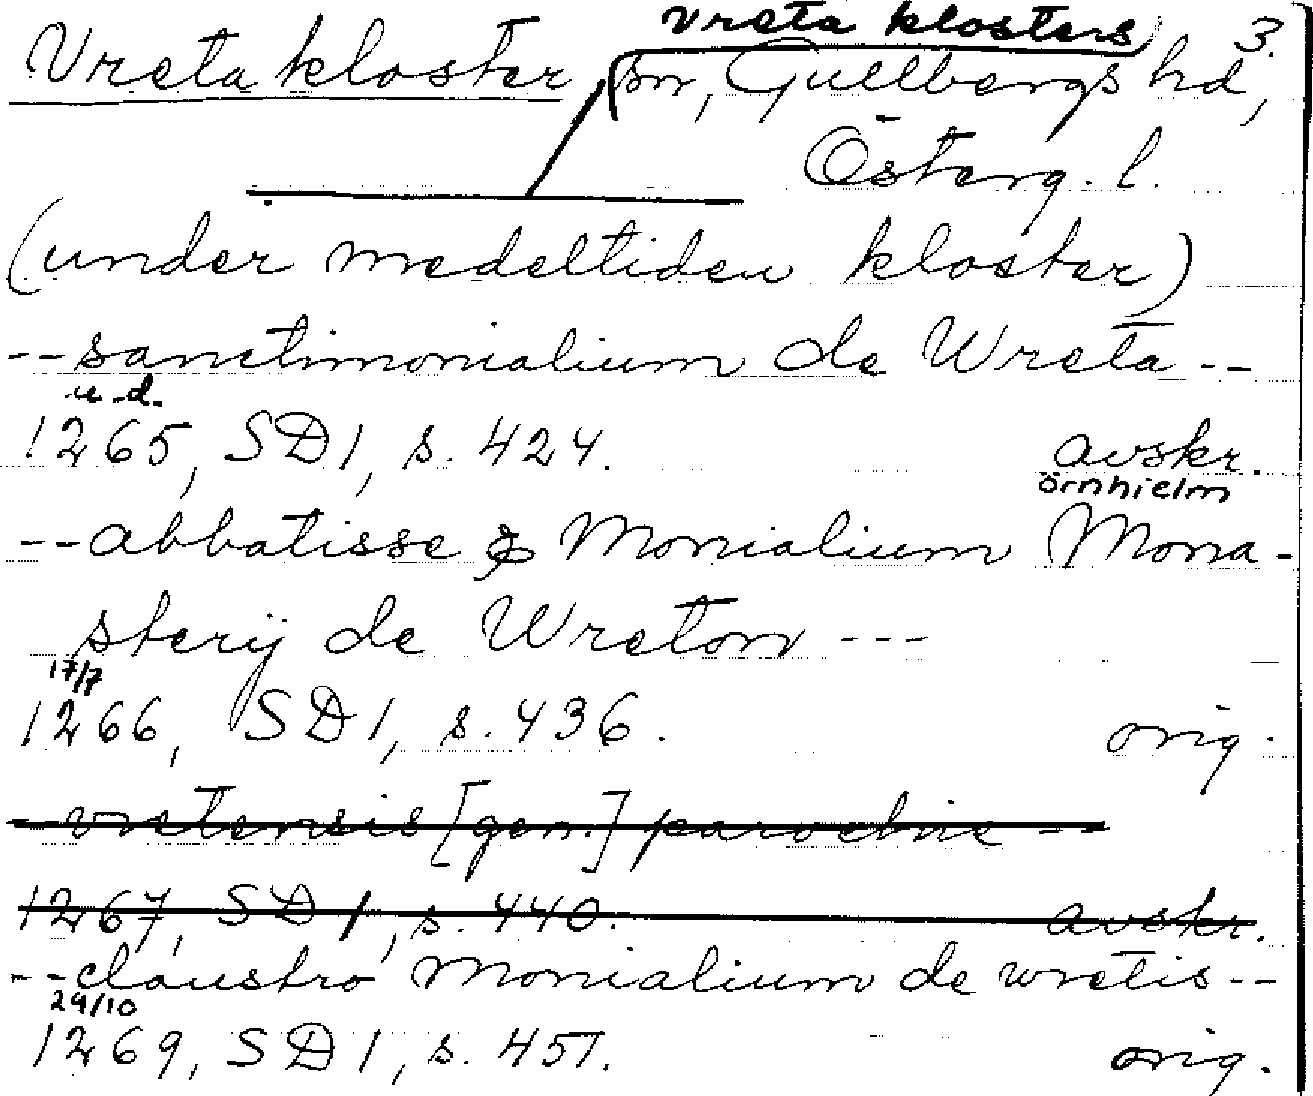 Vreta klosters 3.
Vreta kloster sn, Gullbergs hd,
Österg. l.
(under medeltiden kloster)
--sanctimonialium de Wreta--
u.d.
1265, SD 1, s. 424. avskr.
örnhielm
--abbatisse & Monialium Mona-
sterij de Wretom ---
17/7
1266, SD 1, s. 436. orig.
--vretensis [gen.] parochie --
1267, SD 1, s. 440. avskr.
--claustro Monialium de wretis--
29/10
1269, SD 1, s. 451. orig.